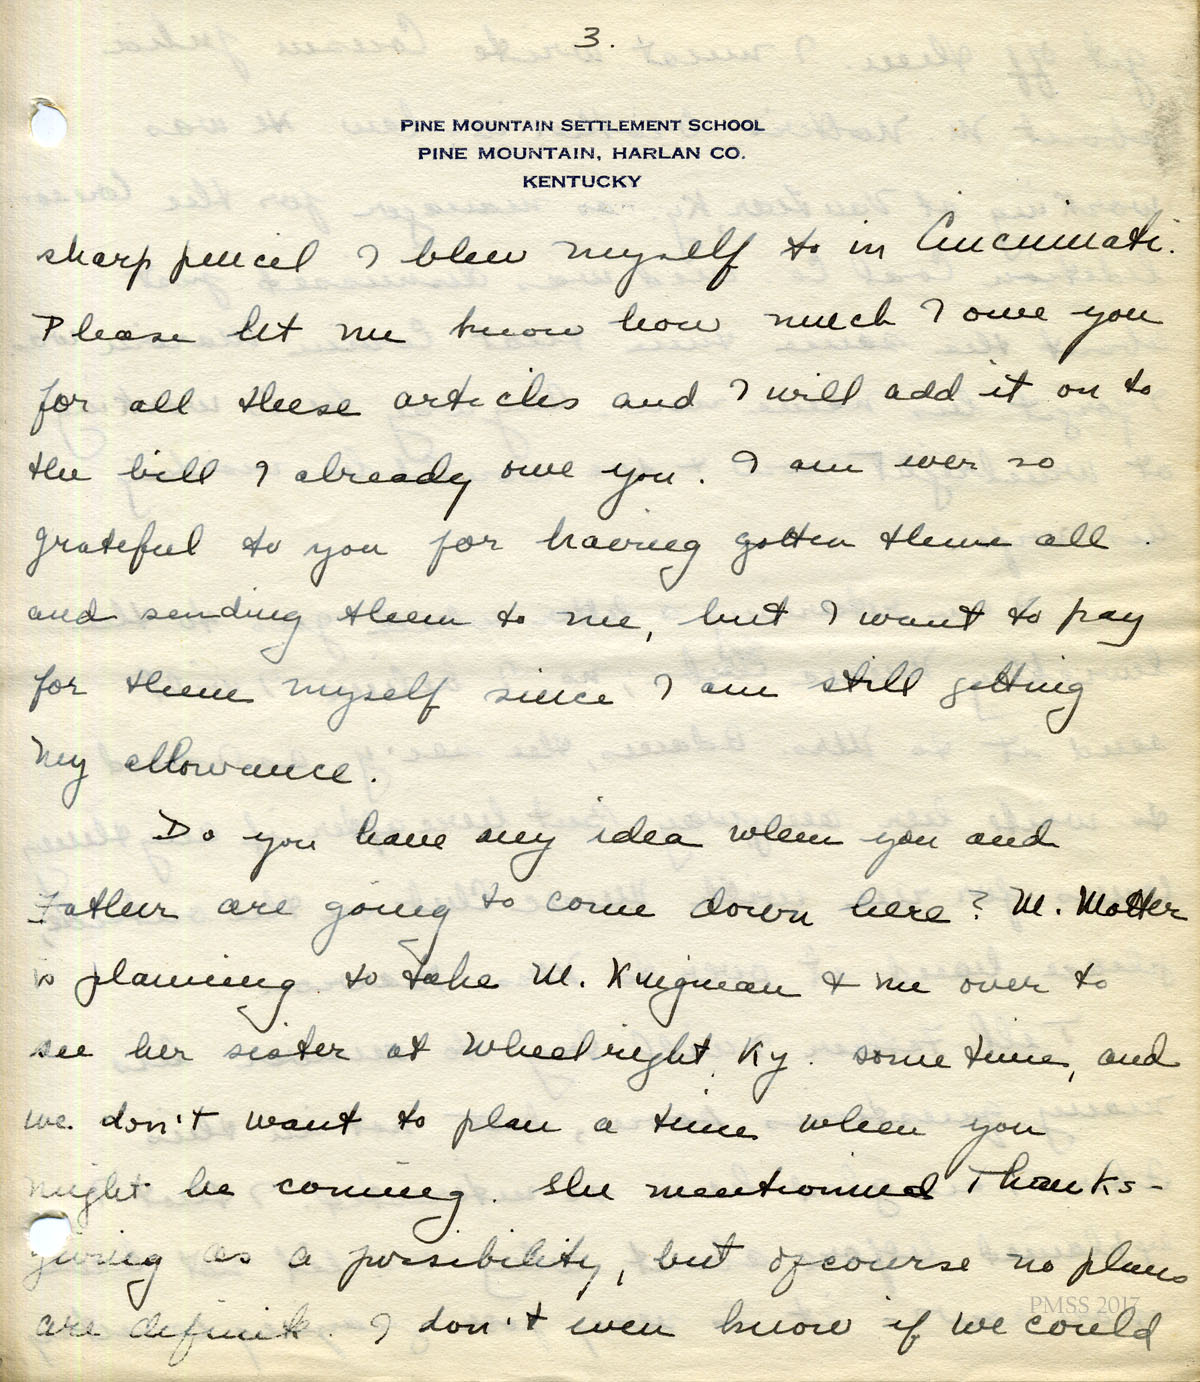 3.
PINE MOUNTAIN SETTLEMENT SCHOOL
PINE MOUNTAIN, HARLAN CO.
KENTUCKY
sharp pencil I blew myself to in Cincinnati.
Please let me know how much I owe you
for all these articles and I will add it on to
the bill I already owe you. I am ever so
grateful to you for having gotten them all
and sending them to me, but I want to pay
for them myself since I am still getting
my allowance.
Do you have any idea when you and
Father are going to come down here? M. Motter
is planning to take M. Kingman & me over to
see her sister at Wheelright, Ky. some time, and
we don't want to plan a time when you
might be coming. She mentioned Thanks-
giving as a possibility, but of course no plans
are definite. I don't even know if we could
PMSS 2017